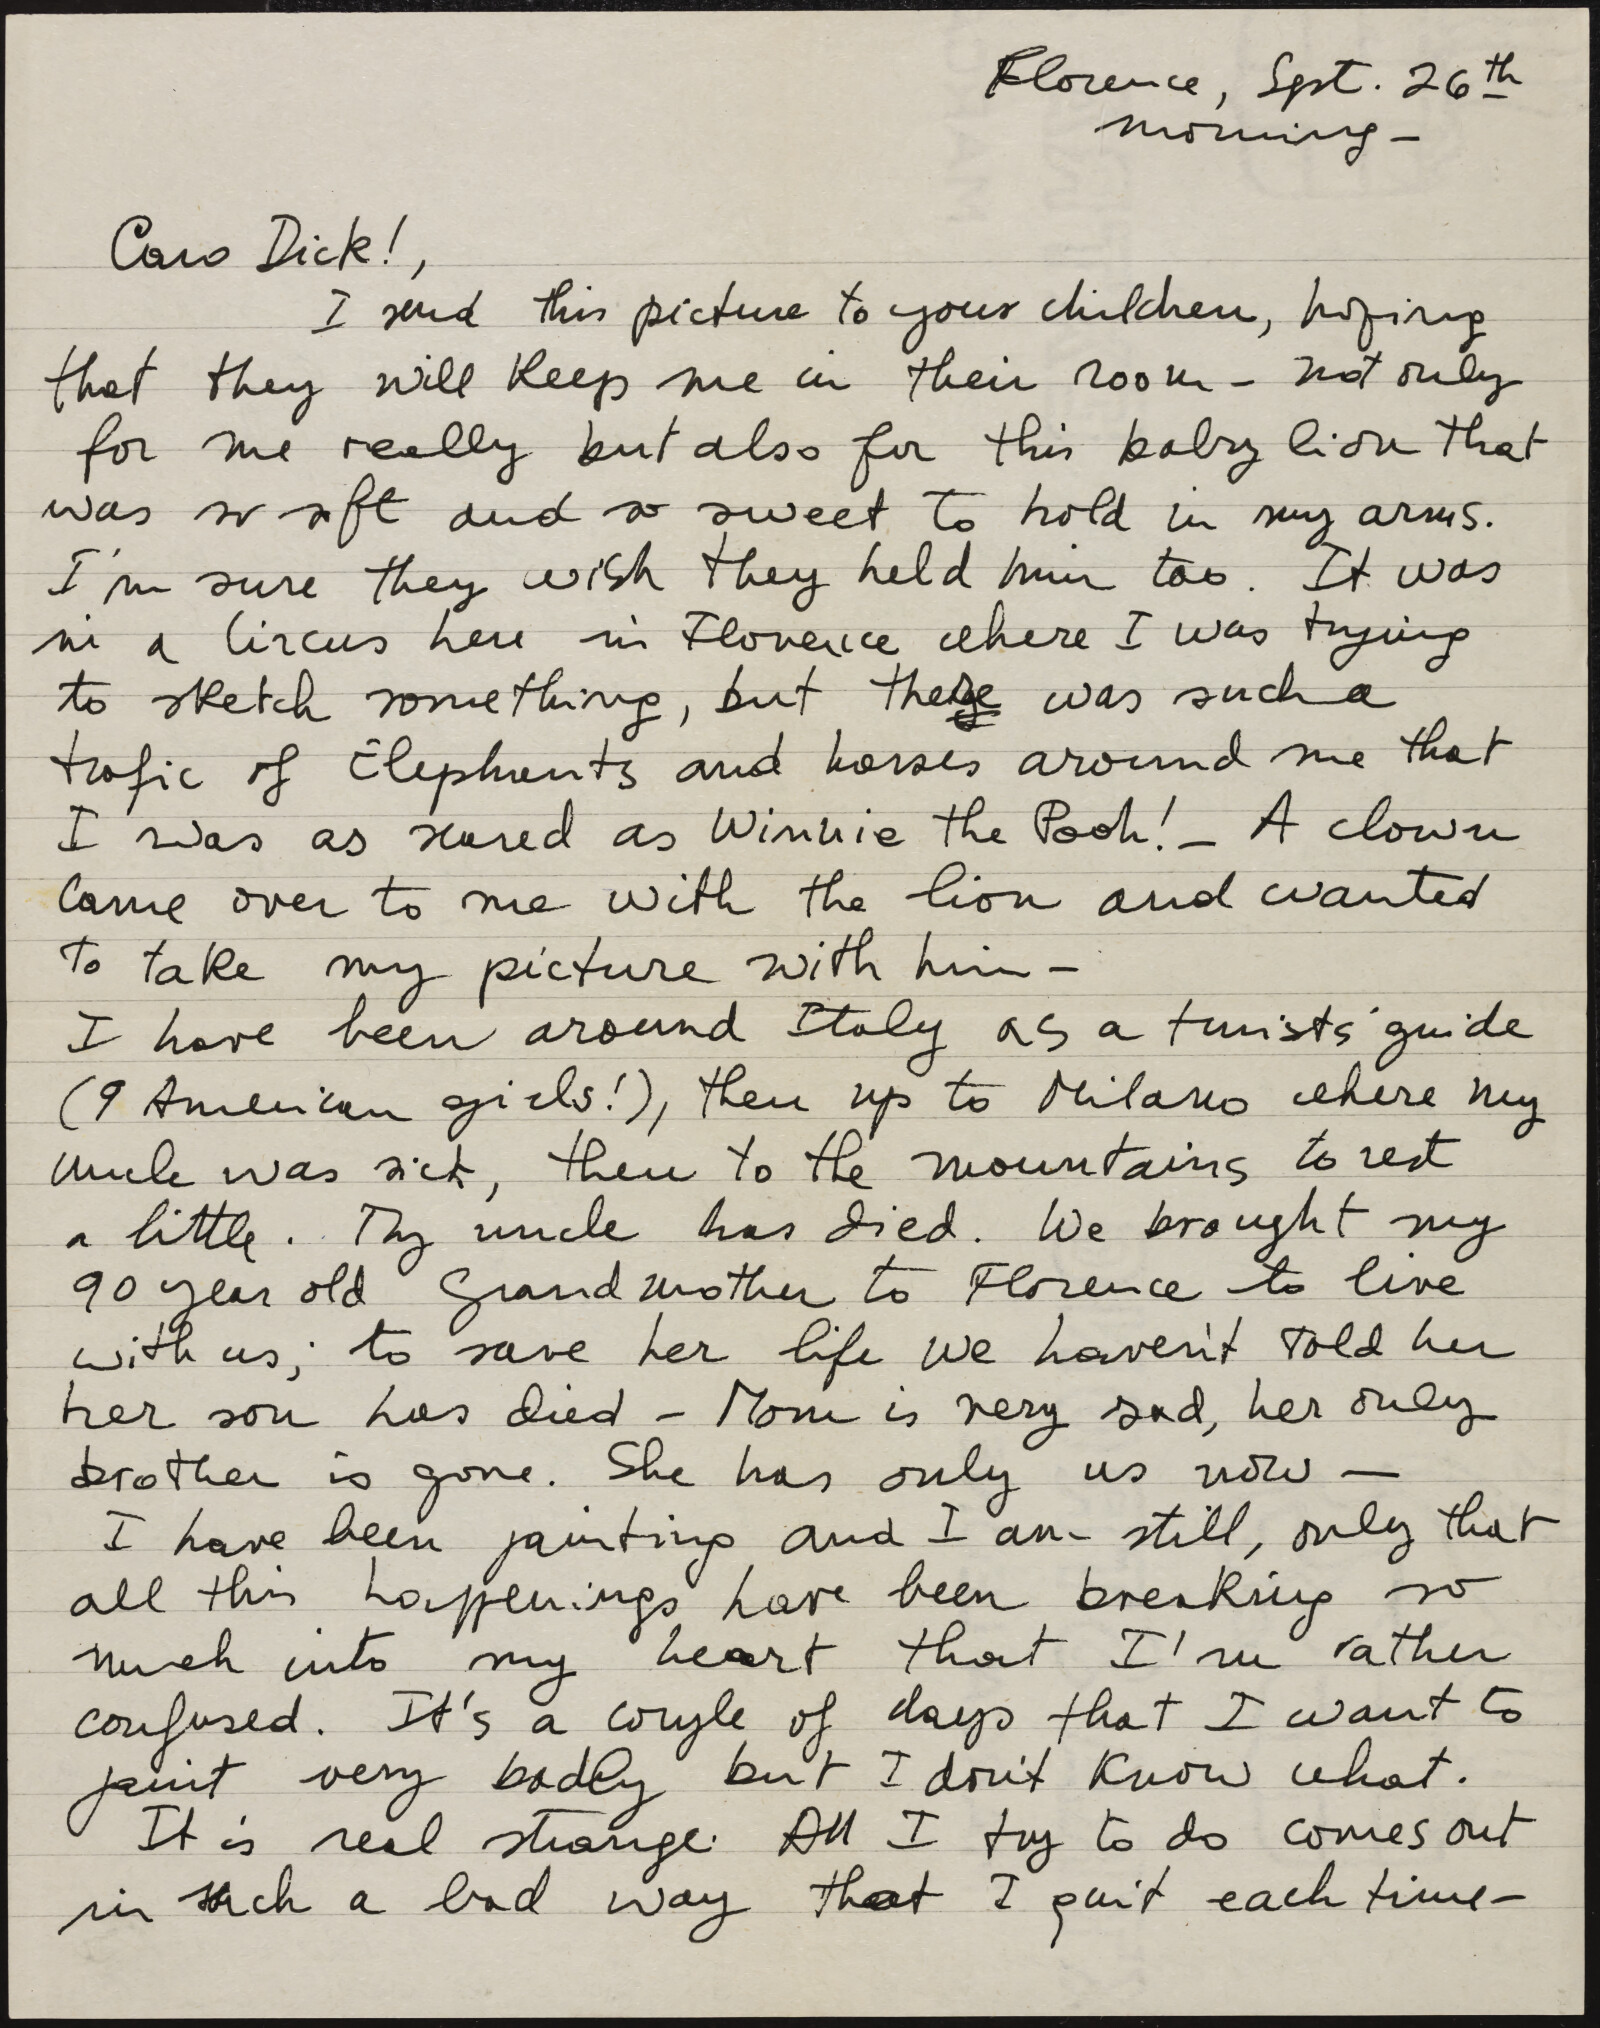 Florence, Sept. 26th
morning –
Caro Dick!,
I send this picture to your children, hoping
that they will keep me in their room – not only
for me really but also for this baby lion that
was so soft and so sweet to hold in my arms.
I'm sure they wish they held him too. It was
in a Circus here in Florence where I was trying
to sketch something, but there was such a
trafic of Elephants and horses around me that
I was as scared as Winnie the Pooh! – A clown
came over to me with the lion and wanted
to take my picture with him –
I have been around Italy as a turists' guide
(9 American girls!), then up to Milano where my
uncle was sick, then to the mountains to rest
a little. My uncle has died. We brought my
90 year old Grandmother to Florence to live
with us; to save her life we haven't told her
her son has died – Mom is very sad, her only
brother is gone. She has only us now –
I have been painting and I am still, only that
all this happenings have been breaking so
much into my heart that I'm rather
confused. It's a couple of days that I want to
paint very badly but I don't know what.
It is real strange. All I try to do comes out
in such a bad way that I quit each time –